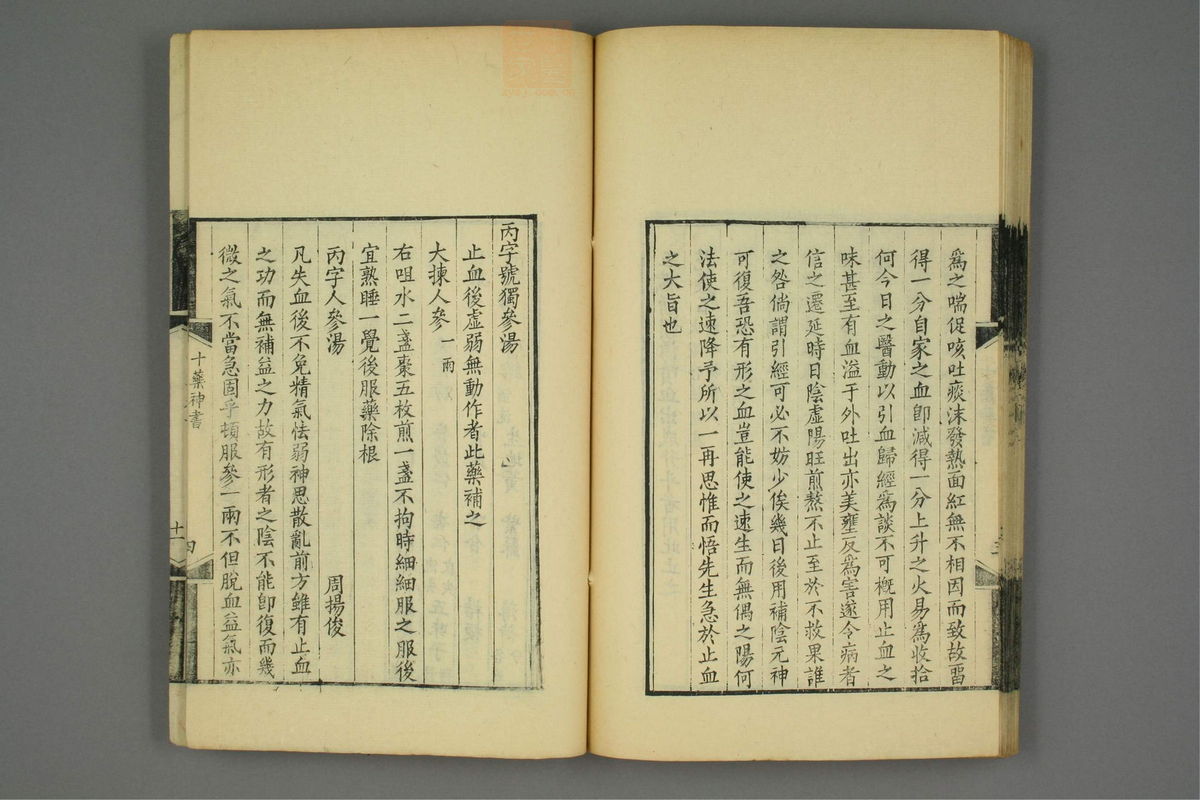 爲之喘促咳吐痰沫發熱面紅無不相因而致故畱
得一分自家之血卽減得一分上升之火易爲收拾
何今日之醫動以引血歸經爲談不可概用止血之
味甚至有血溢于外吐出亦美壅反爲害遂令病者
信之遷延時日陰虛陽旺煎熬不止至於不救果誰
之咎倘謂引經可必不妨少俟幾日後用補陰元神
可復吾恐有形之血豈能使之速生而無偶之陽何
法使之速降予所以一再思惟而悟先生急於止血
之大旨也
丙字號獨參湯
止血後虛弱無動作者此藥補之
大揀人參 一兩
右咀水二盞棗五枚煎一盞不拘時細細服之服後
宜熟睡一覺後服藥除根
丙字人參湯 周揚俊
凡失血後不免精氣怯弱神思散亂前方雖有止血
之功而無補益之力故有形者之陰不能卽復而幾
微之氣不當急固乎頓服參一兩不但脫血益氣亦
十藥神書
十四